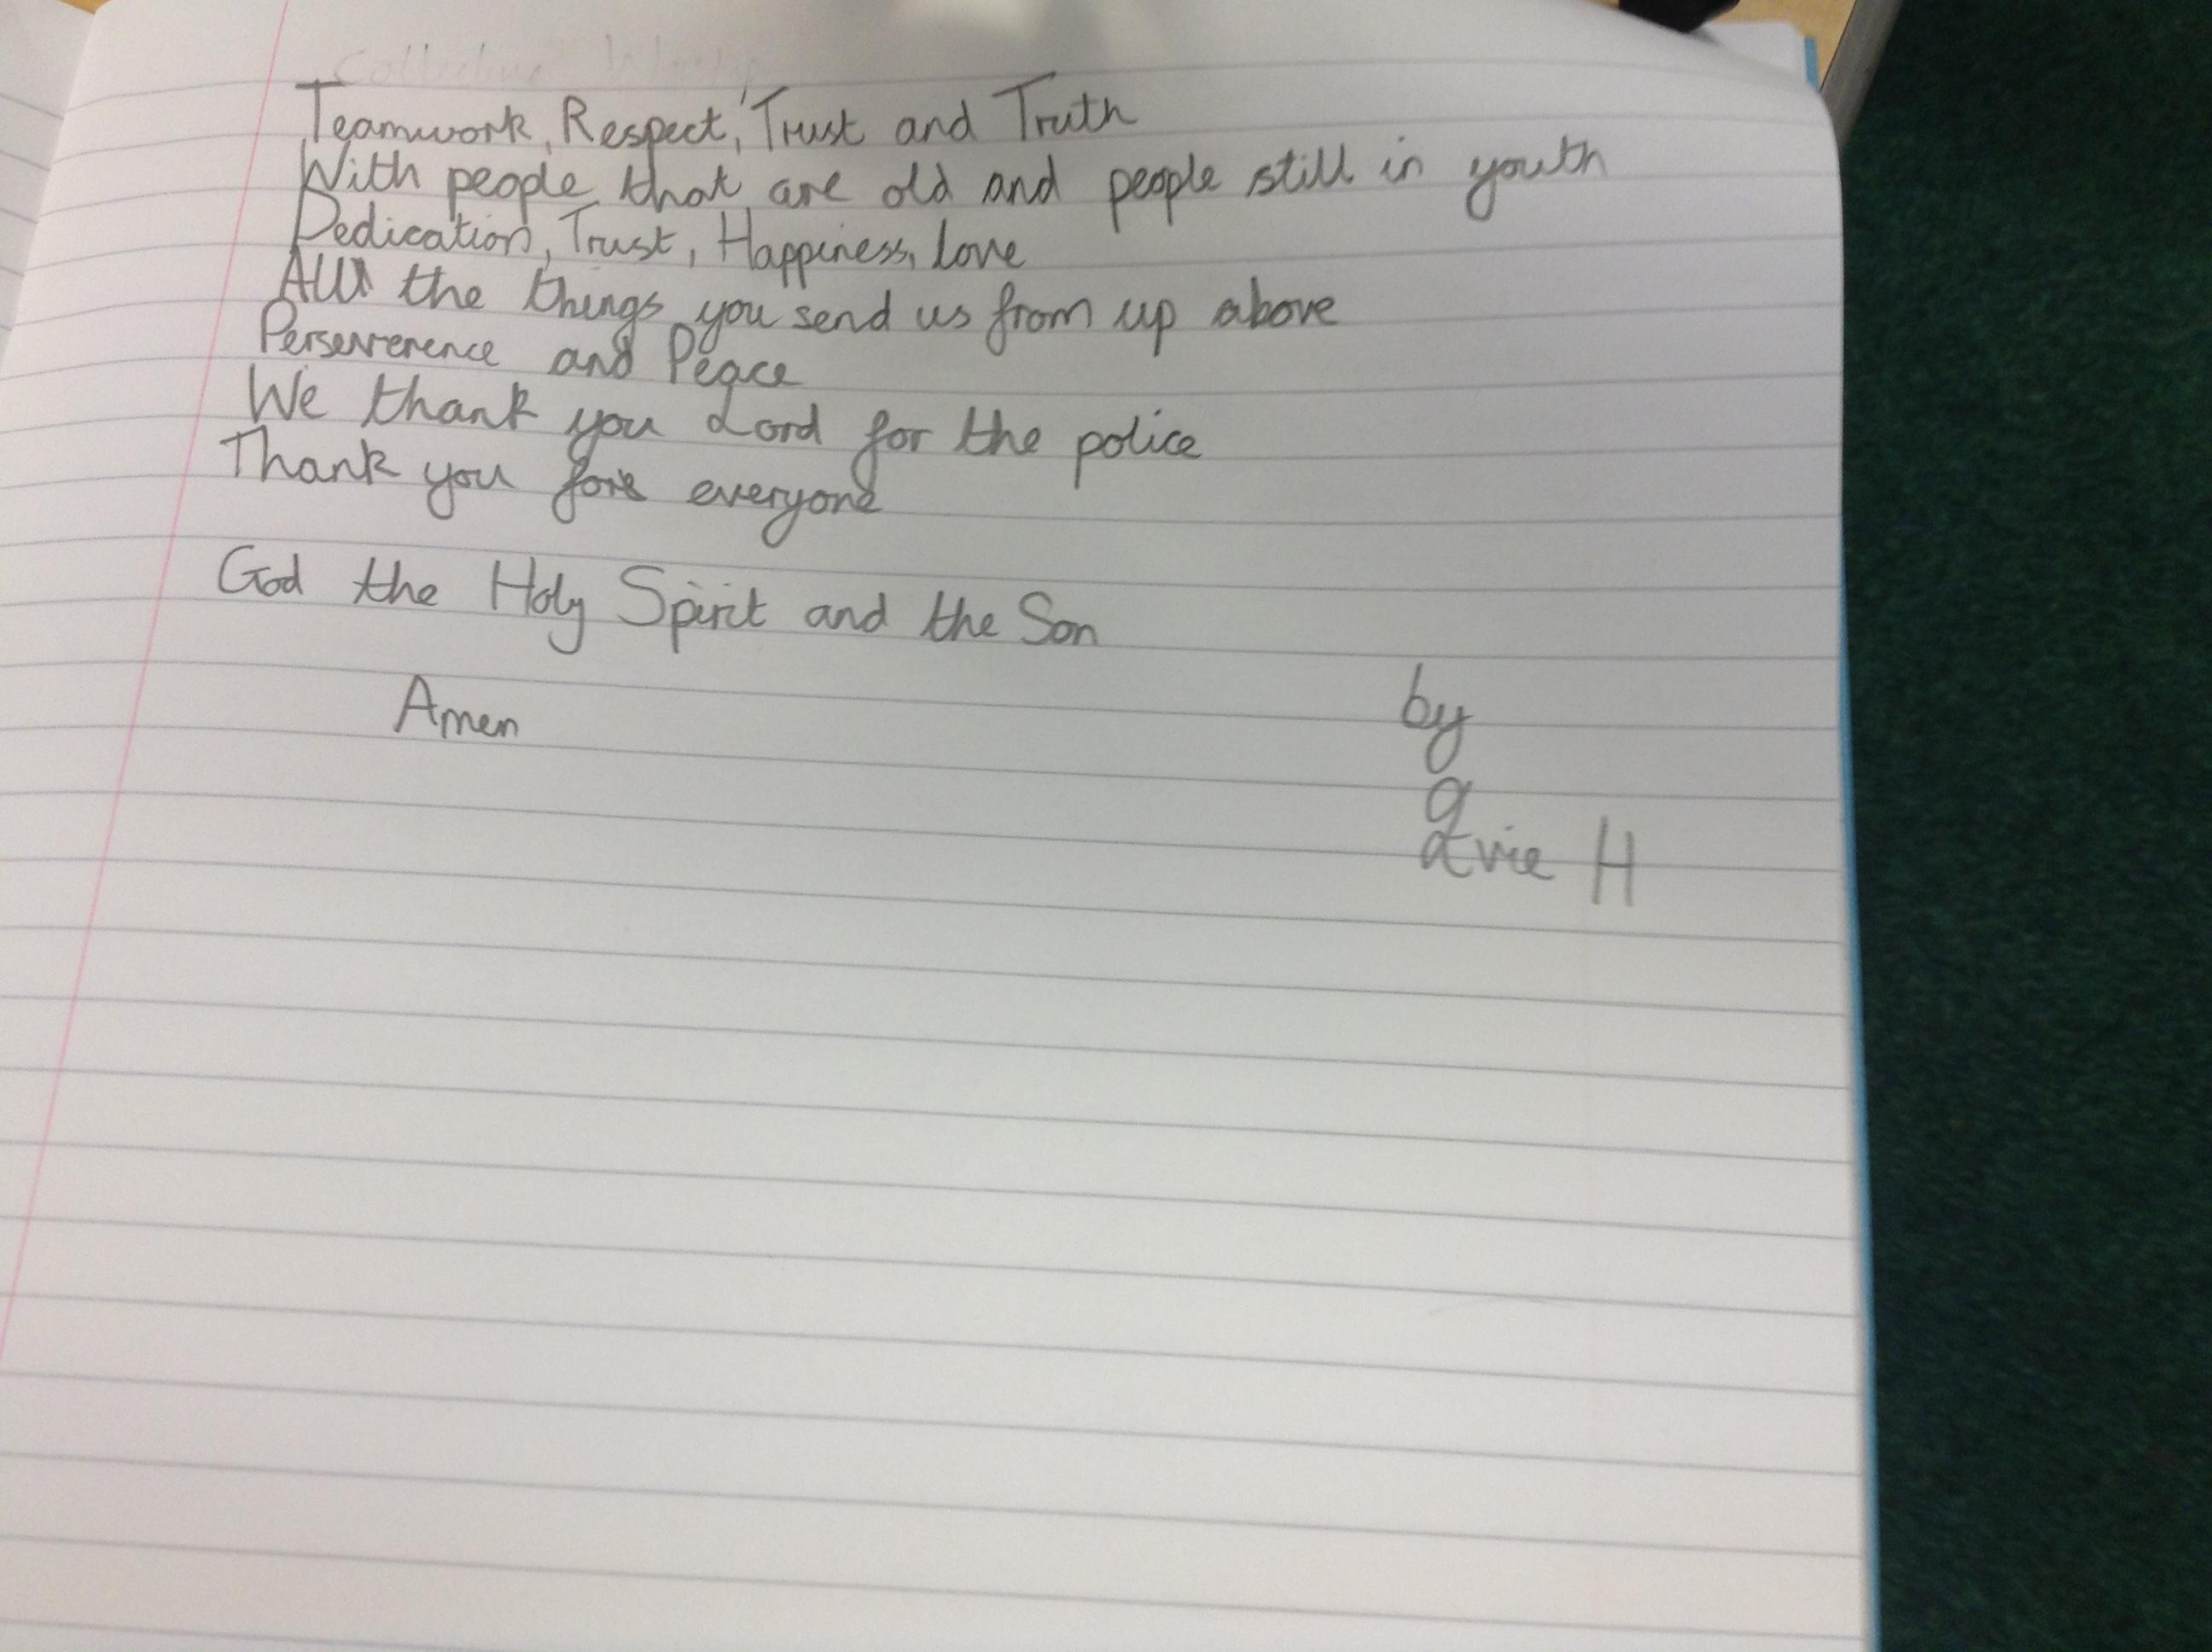 Teamwork, Respect, Trust and Truth
With people that are old and people still in youth
Dedication, Trust, Happiness, love
All the things you send us from up above
Perseverence and Peace
We thank you Lord for the police
Thank you for everyone
God the Holy Spirit and the Son
Amen
by
H